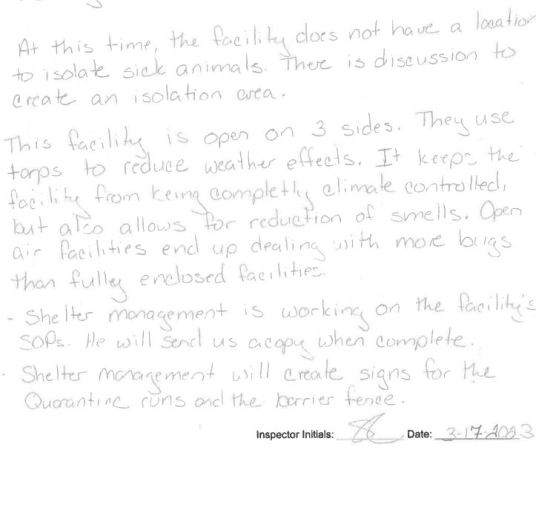 At this time, the facility does not have a location
to isolate sick animals. There is discussion to
create an isolation area.
This facility is open on 3 sides. They use
tarps to reduce weather effects. It keeps the
facility from being completly climate controlled,
but also allows for reduction of smells. Open
air facilities end up dealing with more bugs
than fully enclosed facilities.
- Shelter management is working on the facility's
SOPs. He will send us a copy when complete.
- Shelter management will create signs for the
Quarantine runs and the barrier fence.
Inspector Initials: Date: 3-17-2023